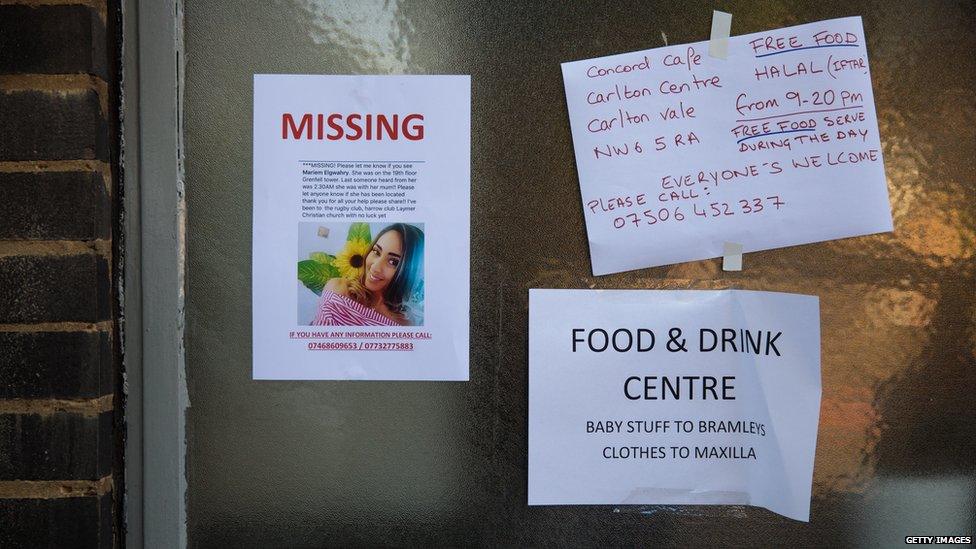 MISSING
***MISSING! Please let me know if you see
Mariem Elgwahry. She was on the 19th floor
Grenfell tower. Last someone heard from her
was 2.30AM she was with her mum!! Please
let anyone know if she has been located
thank you for all your help please share!! I've
been to the rugby club, harrow club Laymer
Christian church with no luck yet
IF YOU HAVE ANY INFORMATION PLEASE CALL:
07468609653 / 07732775883
Concord Cafe
Carlton Centre
Carlton Vale
NW6 5RA
FREE FOOD
HALAL (IFTAR)
from 9-20 pm
FREE FOOD SERVE
DURING THE DAY
EVERYONE'S WELCOME
PLEASE CALL:
07506 452 337
FOOD & DRINK
CENTRE
BABY STUFF TO BRAMLEYS
CLOTHES TO MAXILLA
GETTY IMAGES